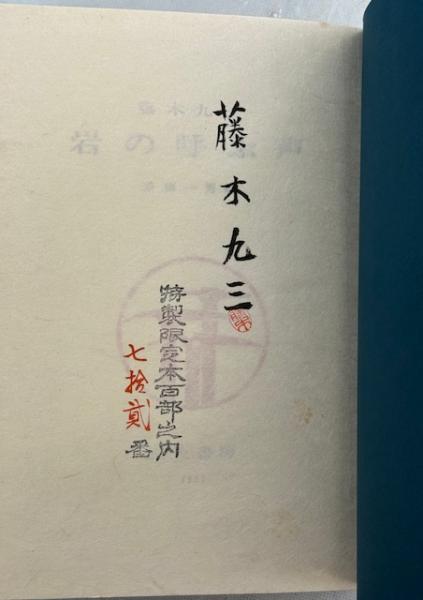 藤木九三
特製限定本百部之内
七拾貳番
岩の呼ぶ声